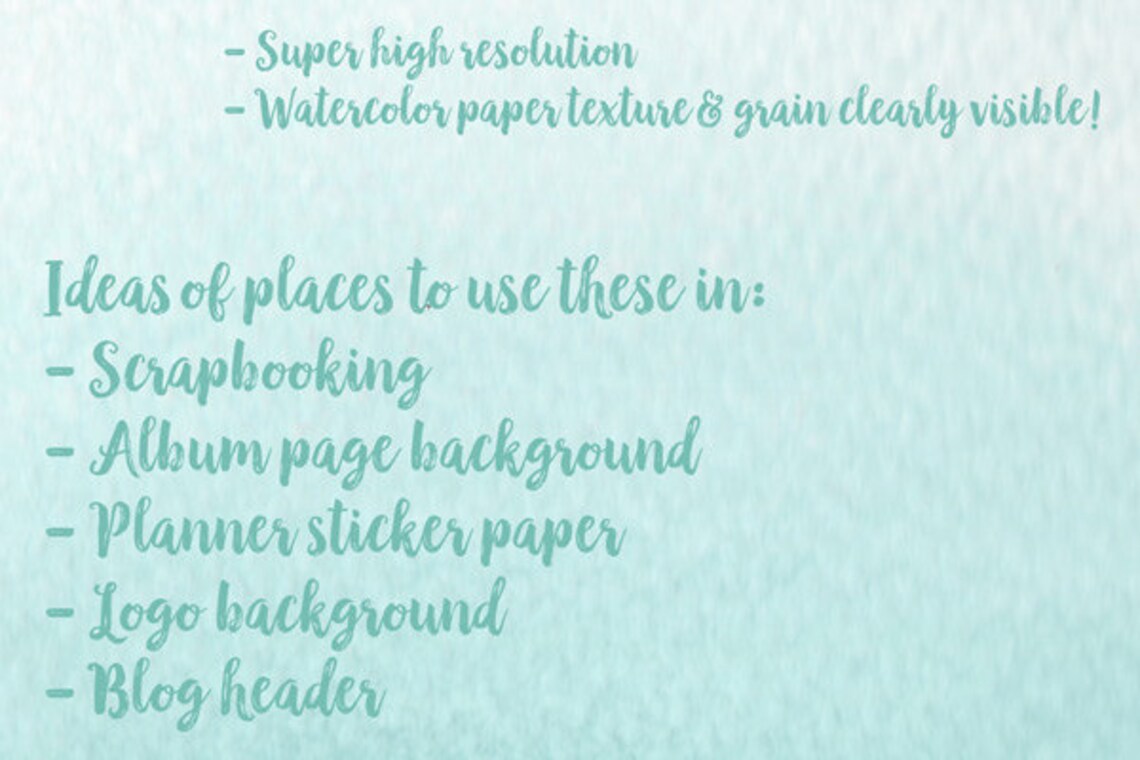 - Super high resolution
- Watercolor paper texture & grain clearly visible!
Ideas of places to use these in:
- Scrapbooking
- Album page background
- Planner sticker paper
- Logo background
- Blog header